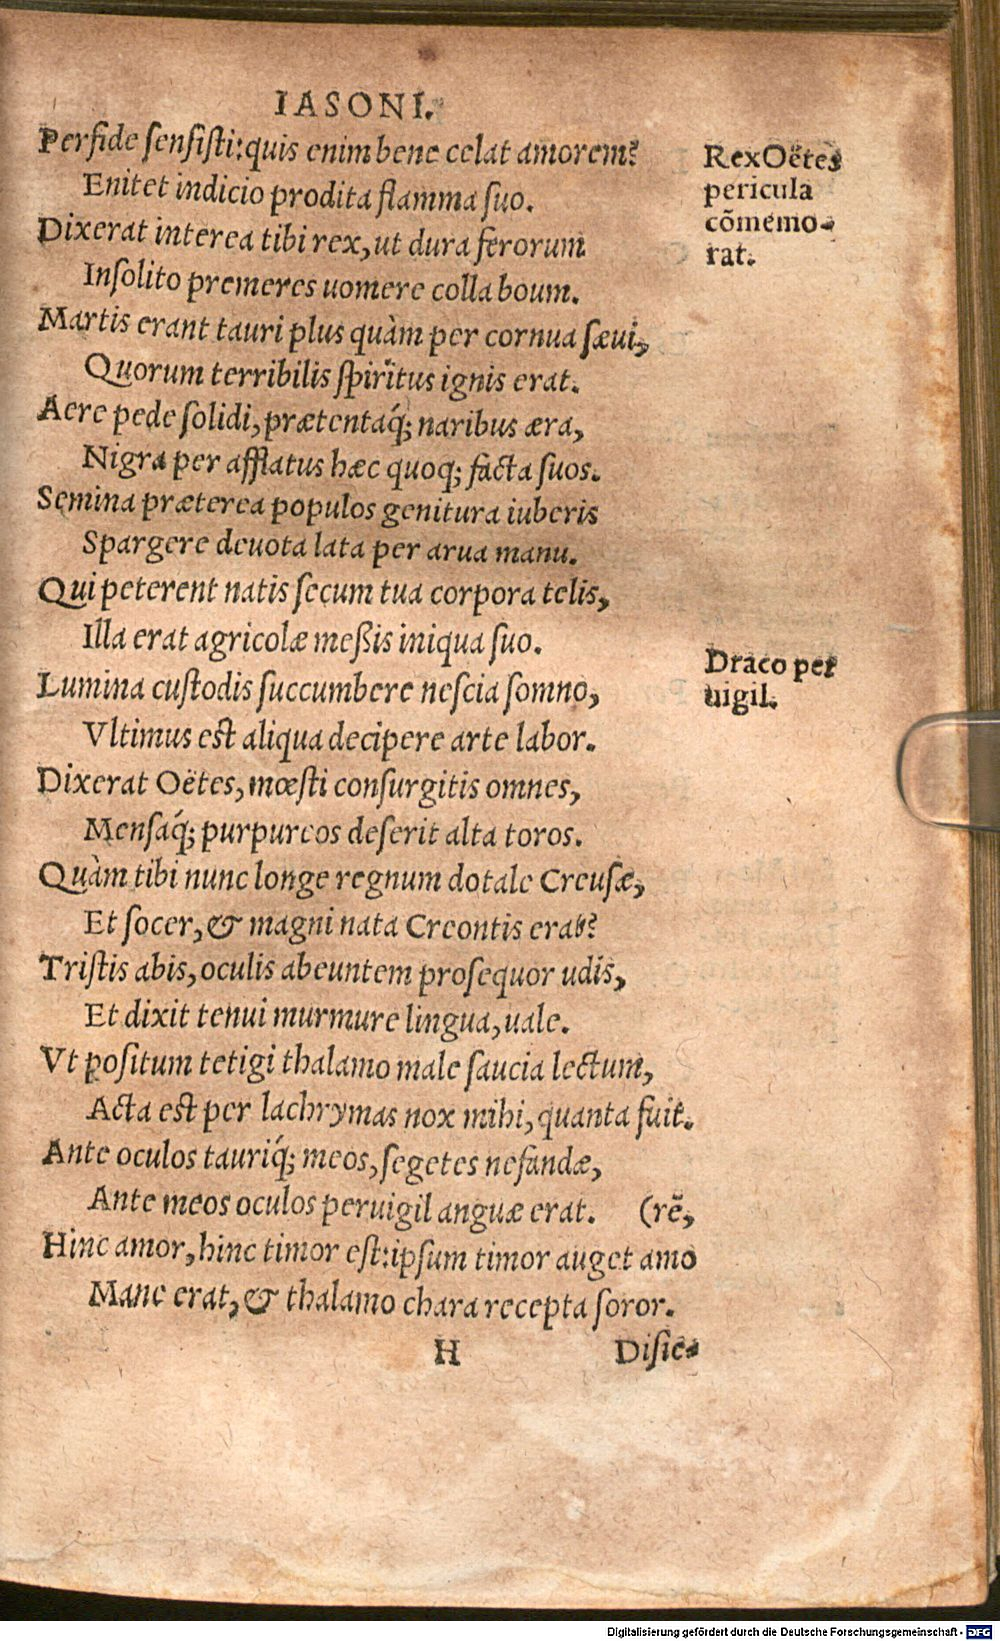 IASONI.
Perfide sensisti: quis enim bene celat amorem?
Enitet indicio prodita flamma suo.
Dixerat interea tibi rex, ut dura ferorum
Insolito premeres uomere colla boum.
Martis erant tauri plus quàm per cornua sæui,
Quorum terribilis spiritus ignis erat.
Aere pede solidi, prætentaq́; naribus æra,
Nigra per afflatus hæc quoq; facta suos.
Semina præterea populos genitura iuberis
Spargere deuota lata per arua manu.
Qui peterent natis secum tua corpora telis,
Illa erat agricolæ meßis iniqua suo.
Lumina custodis succumbere nescia somno,
Vltimus est aliqua decipere arte labor.
Dixerat Oëtes, mœsti consurgitis omnes,
Mensaq́; purpureos deserit alta toros.
Quàm tibi nunc longe regnum dotale Creusæ,
Et socer, & magni nata Creontis erat?
Tristis abis, oculis abeuntem prosequor udis,
Et dixit tenui murmure lingua, uale.
Vt positum tetigi thalamo male saucia lectum,
Acta est per lachrymas nox mihi, quanta fuit.
Ante oculos tauriq́; meos, segetes nefandæ,
Ante meos oculos peruigil anguæ erat. (rē,
Hinc amor, hinc timor est: ipsum timor auget amo
Mane erat, & thalamo chara recepta soror.
H Disie-
Rex Oëtes
pericula
cõmemo-
rat.
Draco per
uigil.
Digitalisierung gefördert durch die Deutsche Forschungsgemeinschaft - DFG